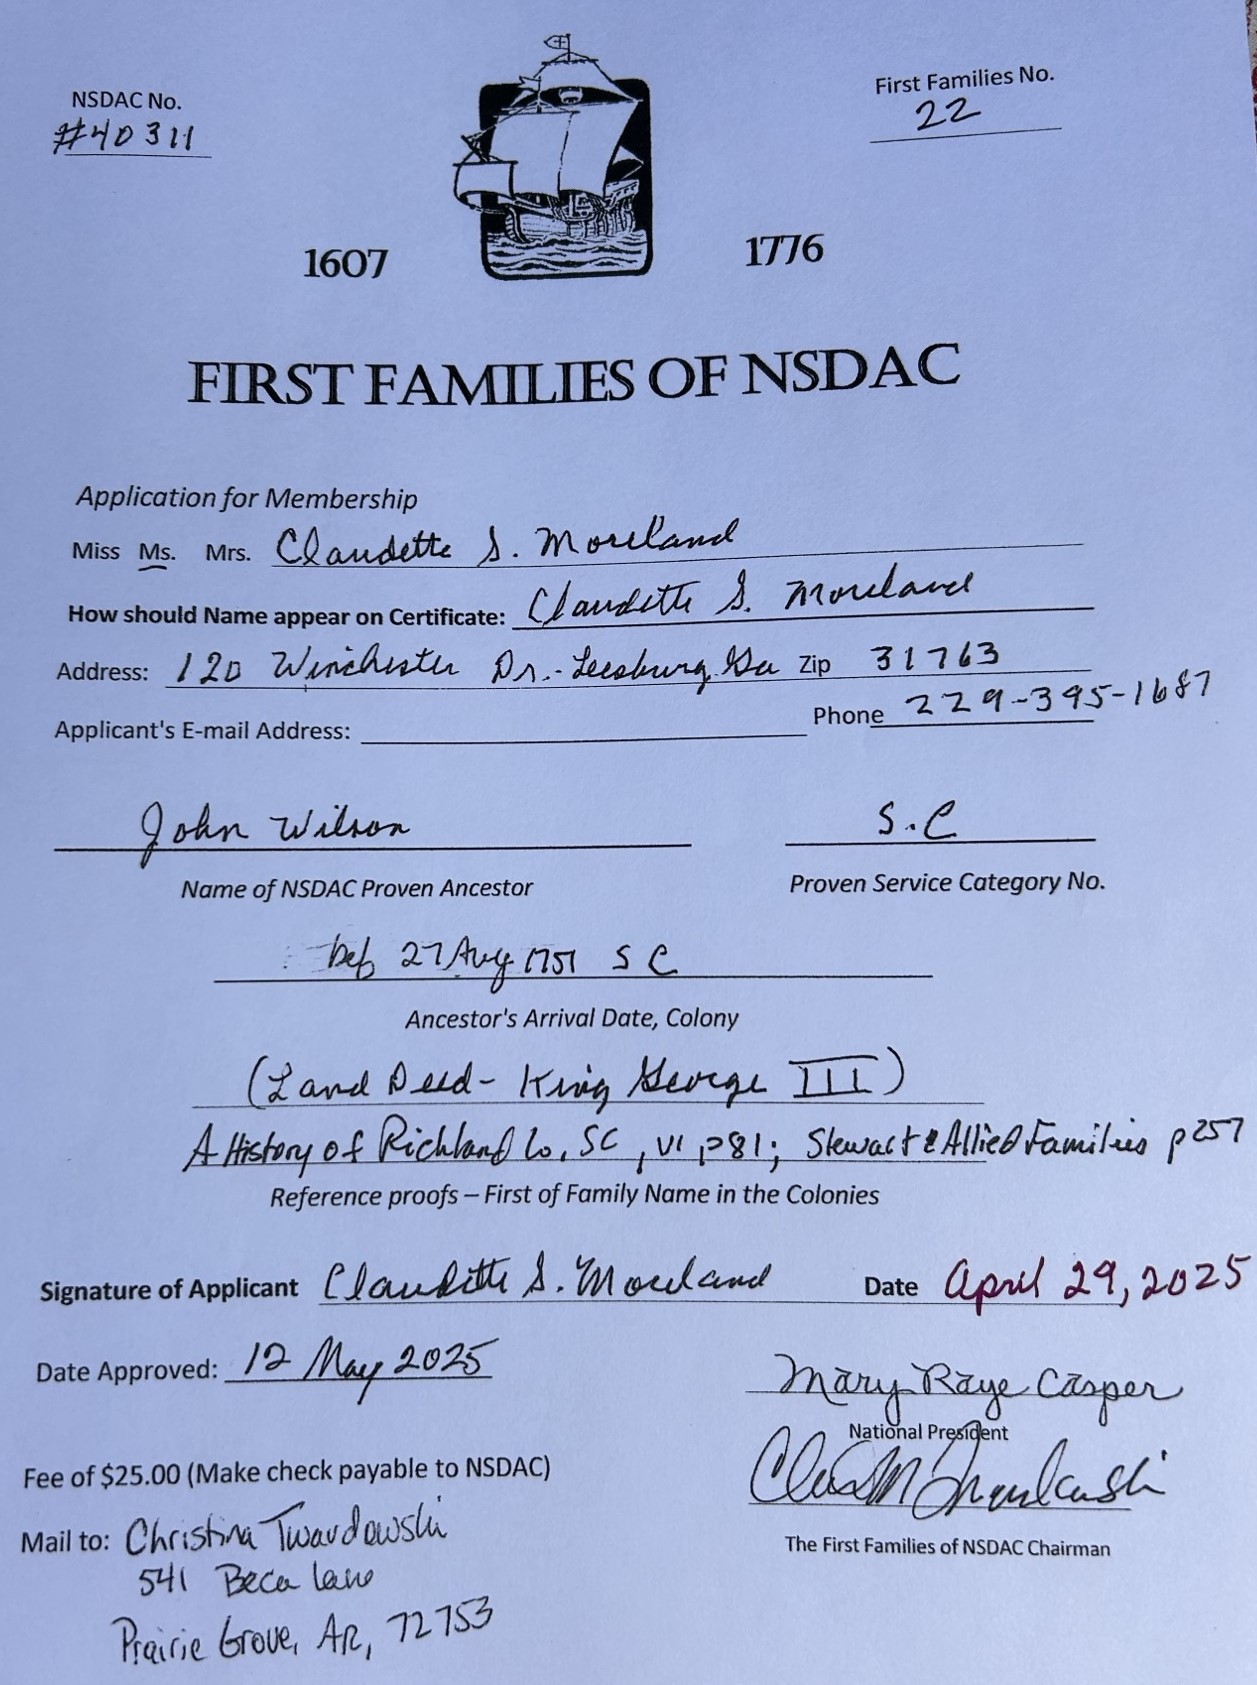 NSDAC No.
#40311
First Families No.
22
1607
1776
FIRST FAMILIES OF NSDAC
Application for Membership
Miss Ms. Mrs. Claudette S. Moreland
How should Name appear on Certificate: Claudette S. Moreland
Address: 120 Winchester Dr.- Leesburg, Ga Zip 31763
Applicant's E-mail Address: Phone 229-395-1687
John Wilson
S.C
Name of NSDAC Proven Ancestor
Proven Service Category No.
bef 27 Aug 1751 S C
Ancestor's Arrival Date, Colony
(Land Deed- King George III)
A History of Richland Co, SC, V1, p81; Stewart & Allied Families p257
Reference proofs – First of Family Name in the Colonies
Signature of Applicant Claudette S. Moreland Date April 29, 2025
Date Approved: 12 May 2025
Mary Raye Casper
National President
Fee of $25.00 (Make check payable to NSDAC)
Mail to: Christina Twardowski
The First Families of NSDAC Chairman
541 Beca Lane
Prairie Grove, AR, 72753